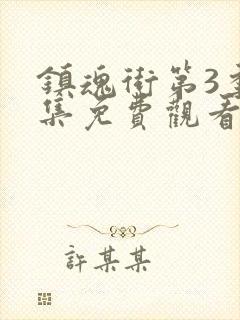 鎮魂街第3季
集免費觀看
許某某